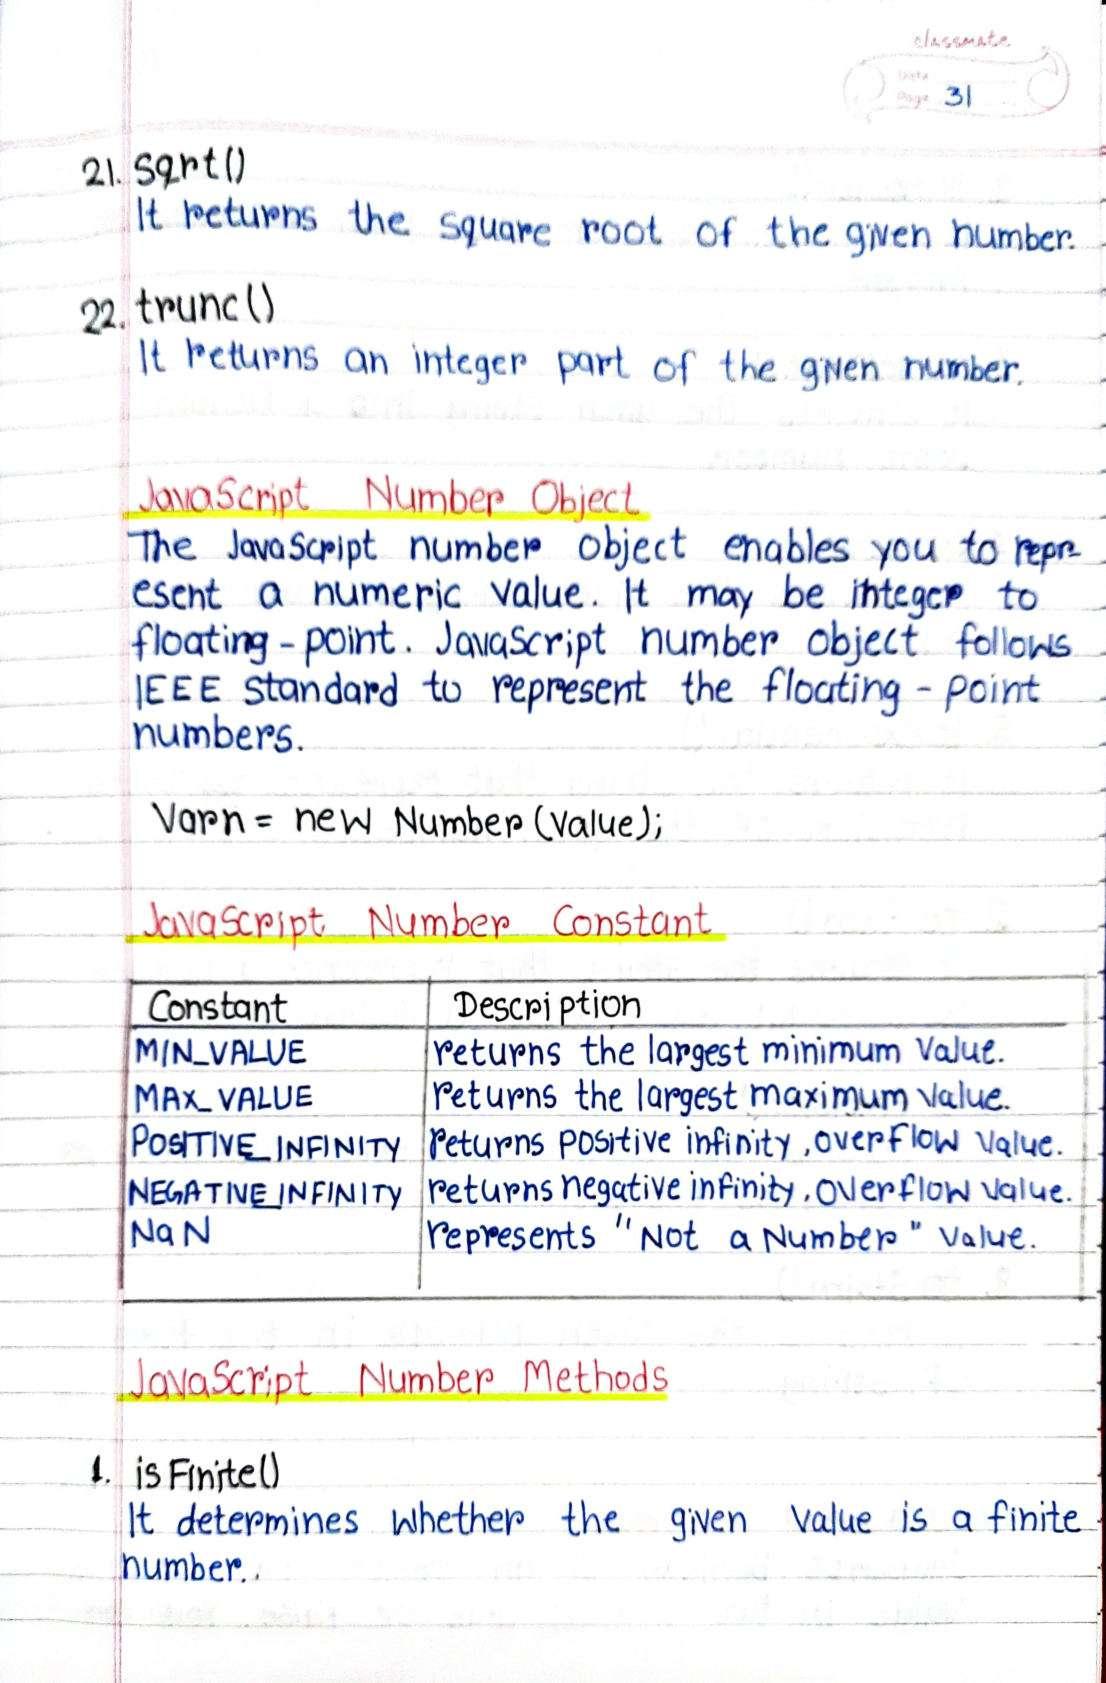 classmate
Date
Page 31
21. sqrt()
It returns the square root of the given number.
22. trunc()
It returns an integer part of the given number.
JavaScript Number Object
The JavaScript number object enables you to repr-
esent a numeric value. It may be integer to
floating-point. JavaScript number object follows
IEEE standard to represent the floating-point
numbers.
Varn = new Number (Value);
JavaScript Number Constant
Constant Description
MIN_VALUE returns the largest minimum Value.
MAX_VALUE returns the largest maximum value.
POSITIVE_INFINITY returns positive infinity, overflow value.
NEGATIVE_INFINITY returns negative infinity, overflow value.
NaN represents "Not a Number" value.
JavaScript Number Methods
1. isFinite()
It determines whether the given value is a finite
number..